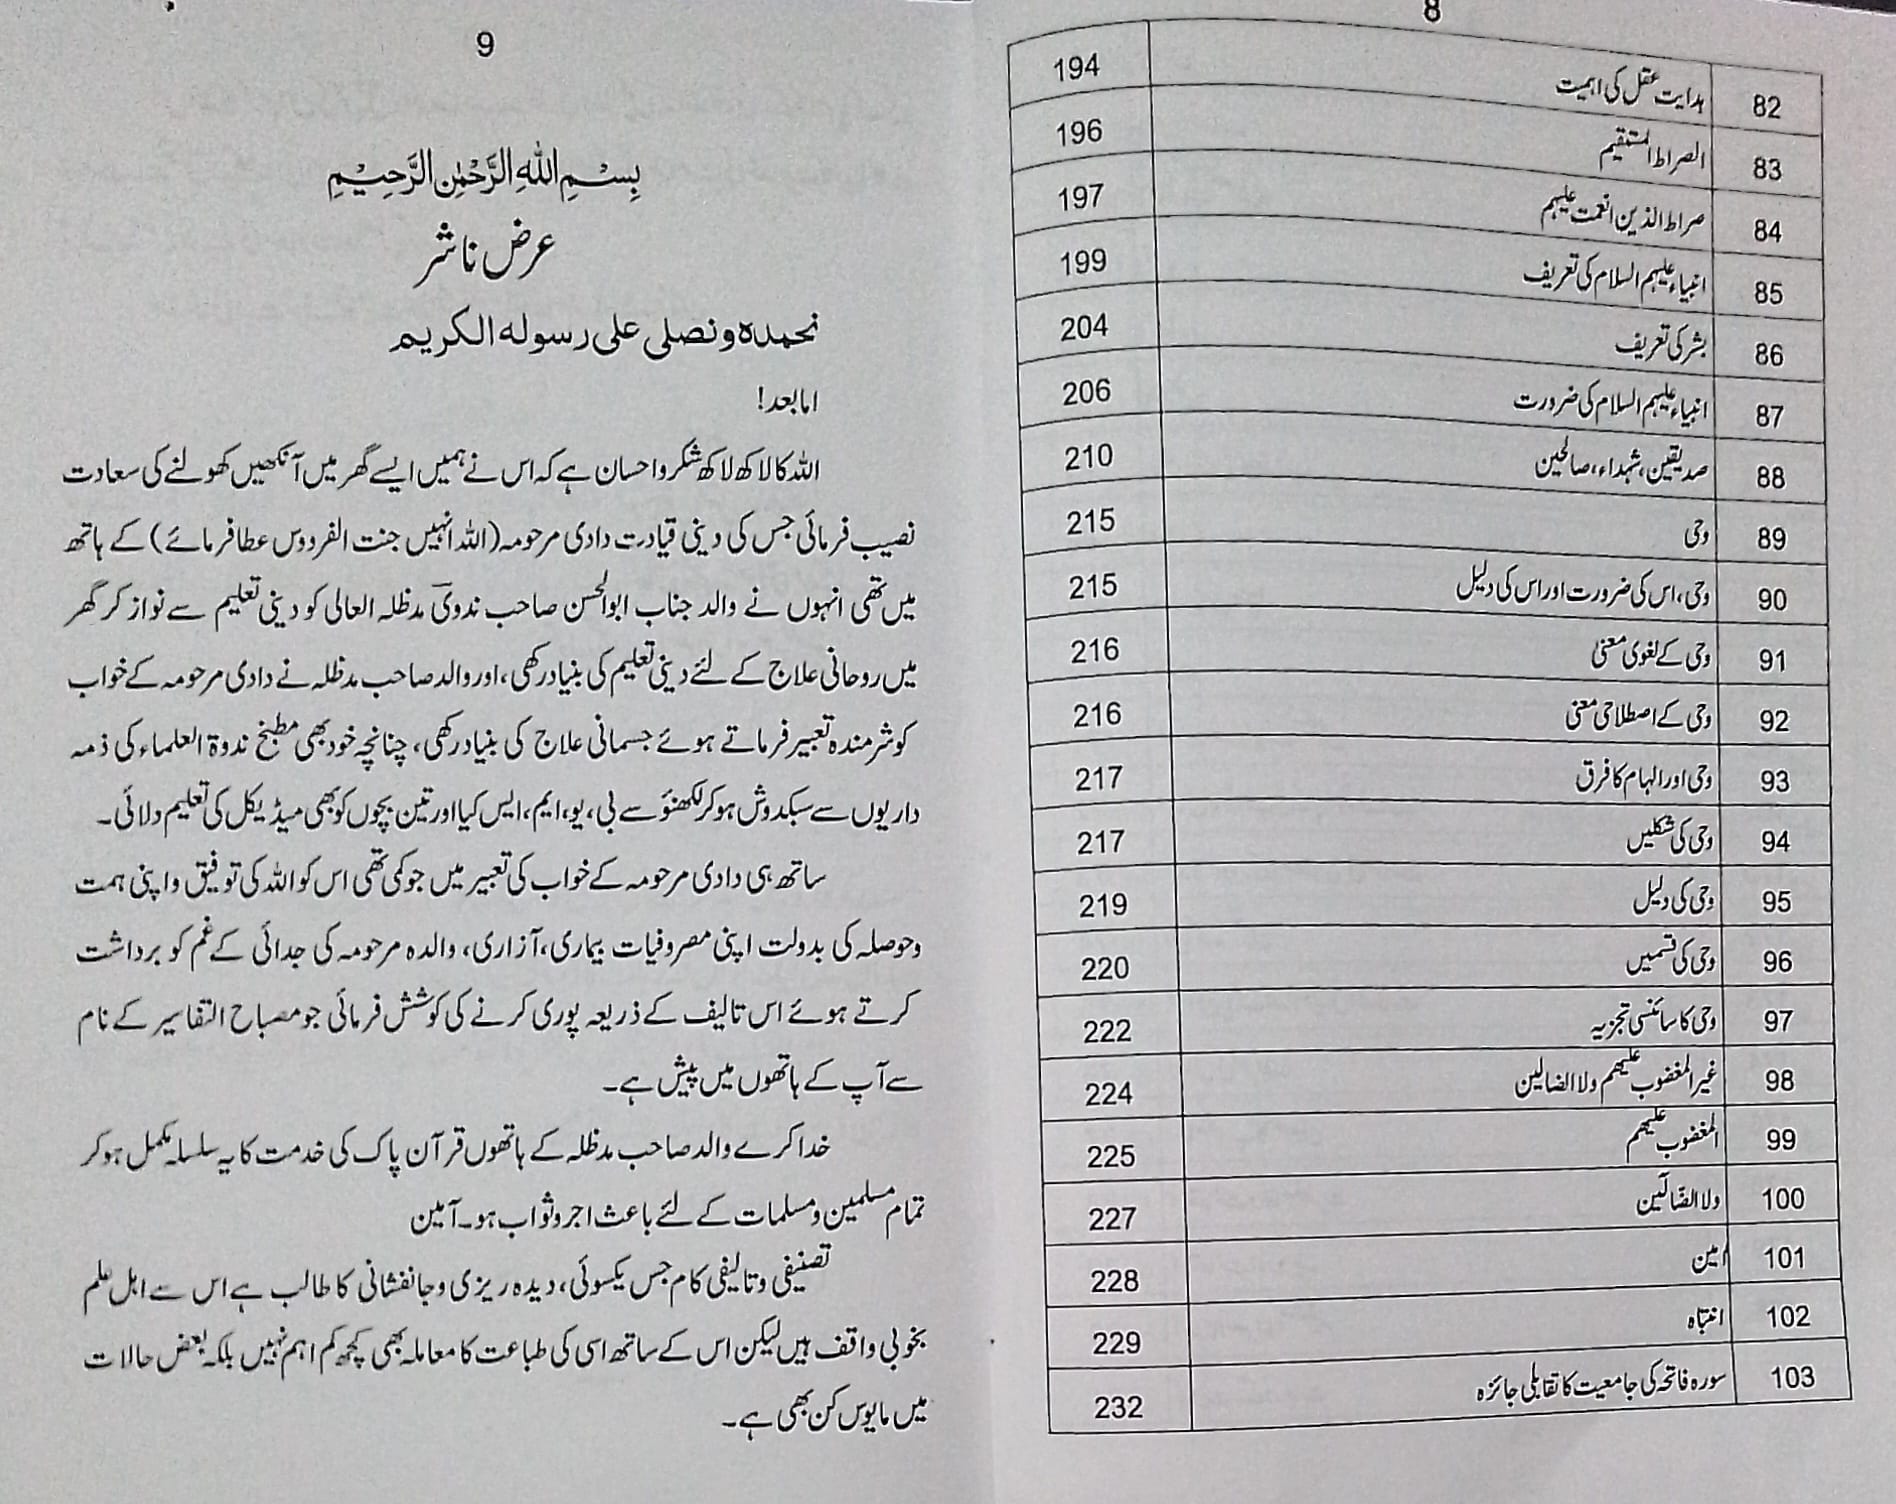 8
82 ہدایت عقل کی اہمیت 194
83 الصراط المستقیم 196
84 صراط الذین انعمت علیہم 197
85 انبیاء علیہم السلام کی تعریف 199
86 بشر کی تعریف 204
87 انبیاء علیہم السلام کی ضرورت 206
88 صدیقین، شہداء، صالحین 210
89 وحی 215
90 وحی، اس کی ضرورت اور اس کی دلیل 215
91 وحی کے لغوی معنیٰ 216
92 وحی کے اصطلاحی معنی 216
93 وحی اور الہام کا فرق 217
94 وحی کی شکلیں 217
95 وحی کی دلیل 219
96 وحی کی قسمیں 220
97 وحی کا سائنسی تجزیہ 222
98 غیر المغضوب علیھم ولا الضالین 224
99 المغضوب علیھم 225
100 ولا الضّالّین 227
101 امین 228
102 انتباہ 229
103 سورہ فاتحہ کی جامعیت کا تقابلی جائزہ 232
9
بِسْمِ اللّٰهِ الرَّحْمٰنِ الرَّحِيْمِ
عرض ناشر
نحمدہ و نصلی علی رسولہ الکریم
اما بعد!
اللہ کا لاکھ لاکھ شکر و احسان ہے کہ اس نے ہمیں ایسے گھر میں آنکھیں کھولنے کی سعادت
نصیب فرمائی جس کی دینی قیادت دادی مرحومہ (اللہ انہیں جنت الفردوس عطا فرمائے) کے ہاتھ
میں تھی انہوں نے والد جناب ابوالحسن صاحب ندوی مدظلہ العالی کو دینی تعلیم سے نواز کر گھر
میں روحانی علاج کے لئے دینی تعلیم کی بنیاد رکھی، اور والد صاحب مدظلہ نے دادی مرحومہ کے خواب
کو شرمندہ تعبیر فرماتے ہوئے جسمانی علاج کی بنیاد رکھی، چنانچہ خود بھی مطبخ ندوۃ العلماء کی ذمہ
داریوں سے سبکدوش ہو کر لکھنؤ سے بی، یو، ایم، ایس کیا اور تین بچوں کو بھی میڈیکل کی تعلیم دلائی۔
ساتھ ہی دادی مرحومہ کے خواب کی تعبیر میں جو کمی تھی اس کو اللہ کی توفیق و اپنی ہمت
وحوصلہ کی بدولت اپنی مصروفیات بیماری، آزاری، والدہ مرحومہ کی جدائی کے غم کو برداشت
کرتے ہوئے اس تالیف کے ذریعہ پوری کرنے کی کوشش فرمائی جو مصباح التفاسیر کے نام
سے آپ کے ہاتھوں میں پیش ہے۔
خدا کرے والد صاحب مدظلہ کے ہاتھوں قرآن پاک کی خدمت کا یہ سلسلہ مکمل ہو کر
تمام مسلمین و مسلمات کے لئے باعث اجر و ثواب ہو۔ آمین
تصنیفی و تالیفی کام جس یکسوئی، دیدہ ریزی و جانفشانی کا طالب ہے اس سے اہل علم
بخوبی واقف ہیں لیکن اس کے ساتھ اسی کی طباعت کا معاملہ بھی کچھ کم اہم نہیں بلکہ بعض حالات
میں مایوس کن بھی ہے۔